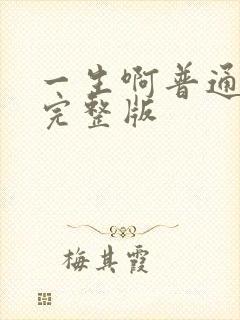 一生啊普通
完整版
梅其霞